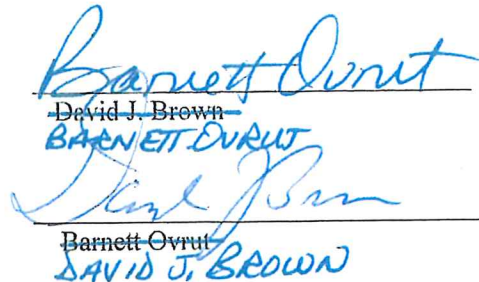 Barnett Ovrut
David J. Brown
BARNETT OVRUT
David J Brown
Barnett Ovrut
DAVID J. BROWN